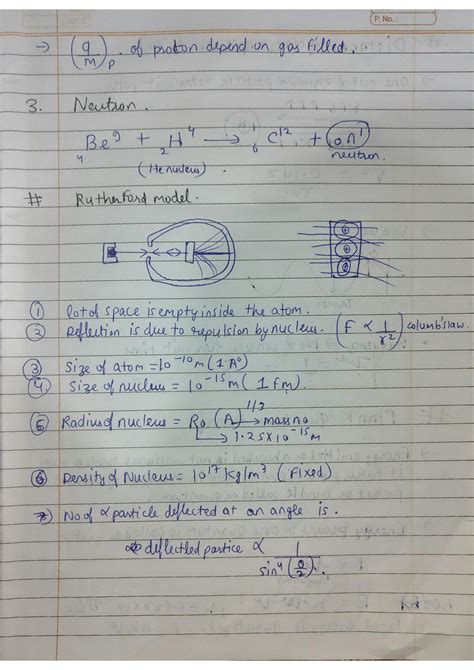 P. No.:
→ (q/m)p . of proton depend on gas filled.
3. Neutron.
₄Be⁹ + ₂H⁴ → ₆C¹² + ₀n¹
(He nucleus) neutron.
# Rutherford model.
① lot of space is empty inside the atom.
② Deflection is due to repulsion by nucleus. (F ∝ 1/r²) columb's law.
③ Size of atom = 10⁻¹⁰ m (1 A⁰)
④ Size of nucleus = 10⁻¹⁵ m (1 fm).
⑤ Radius of nucleus = R₀ (A)^1/3 → mass no
→ 1.25 X 10⁻¹⁵ m
⑥ Density of Nucleus = 10¹⁷ kg/m³ (Fixed)
⑦ No of α particle deflected at an angle is.
deflectled partice ∝ 1/sin⁴(θ/2).